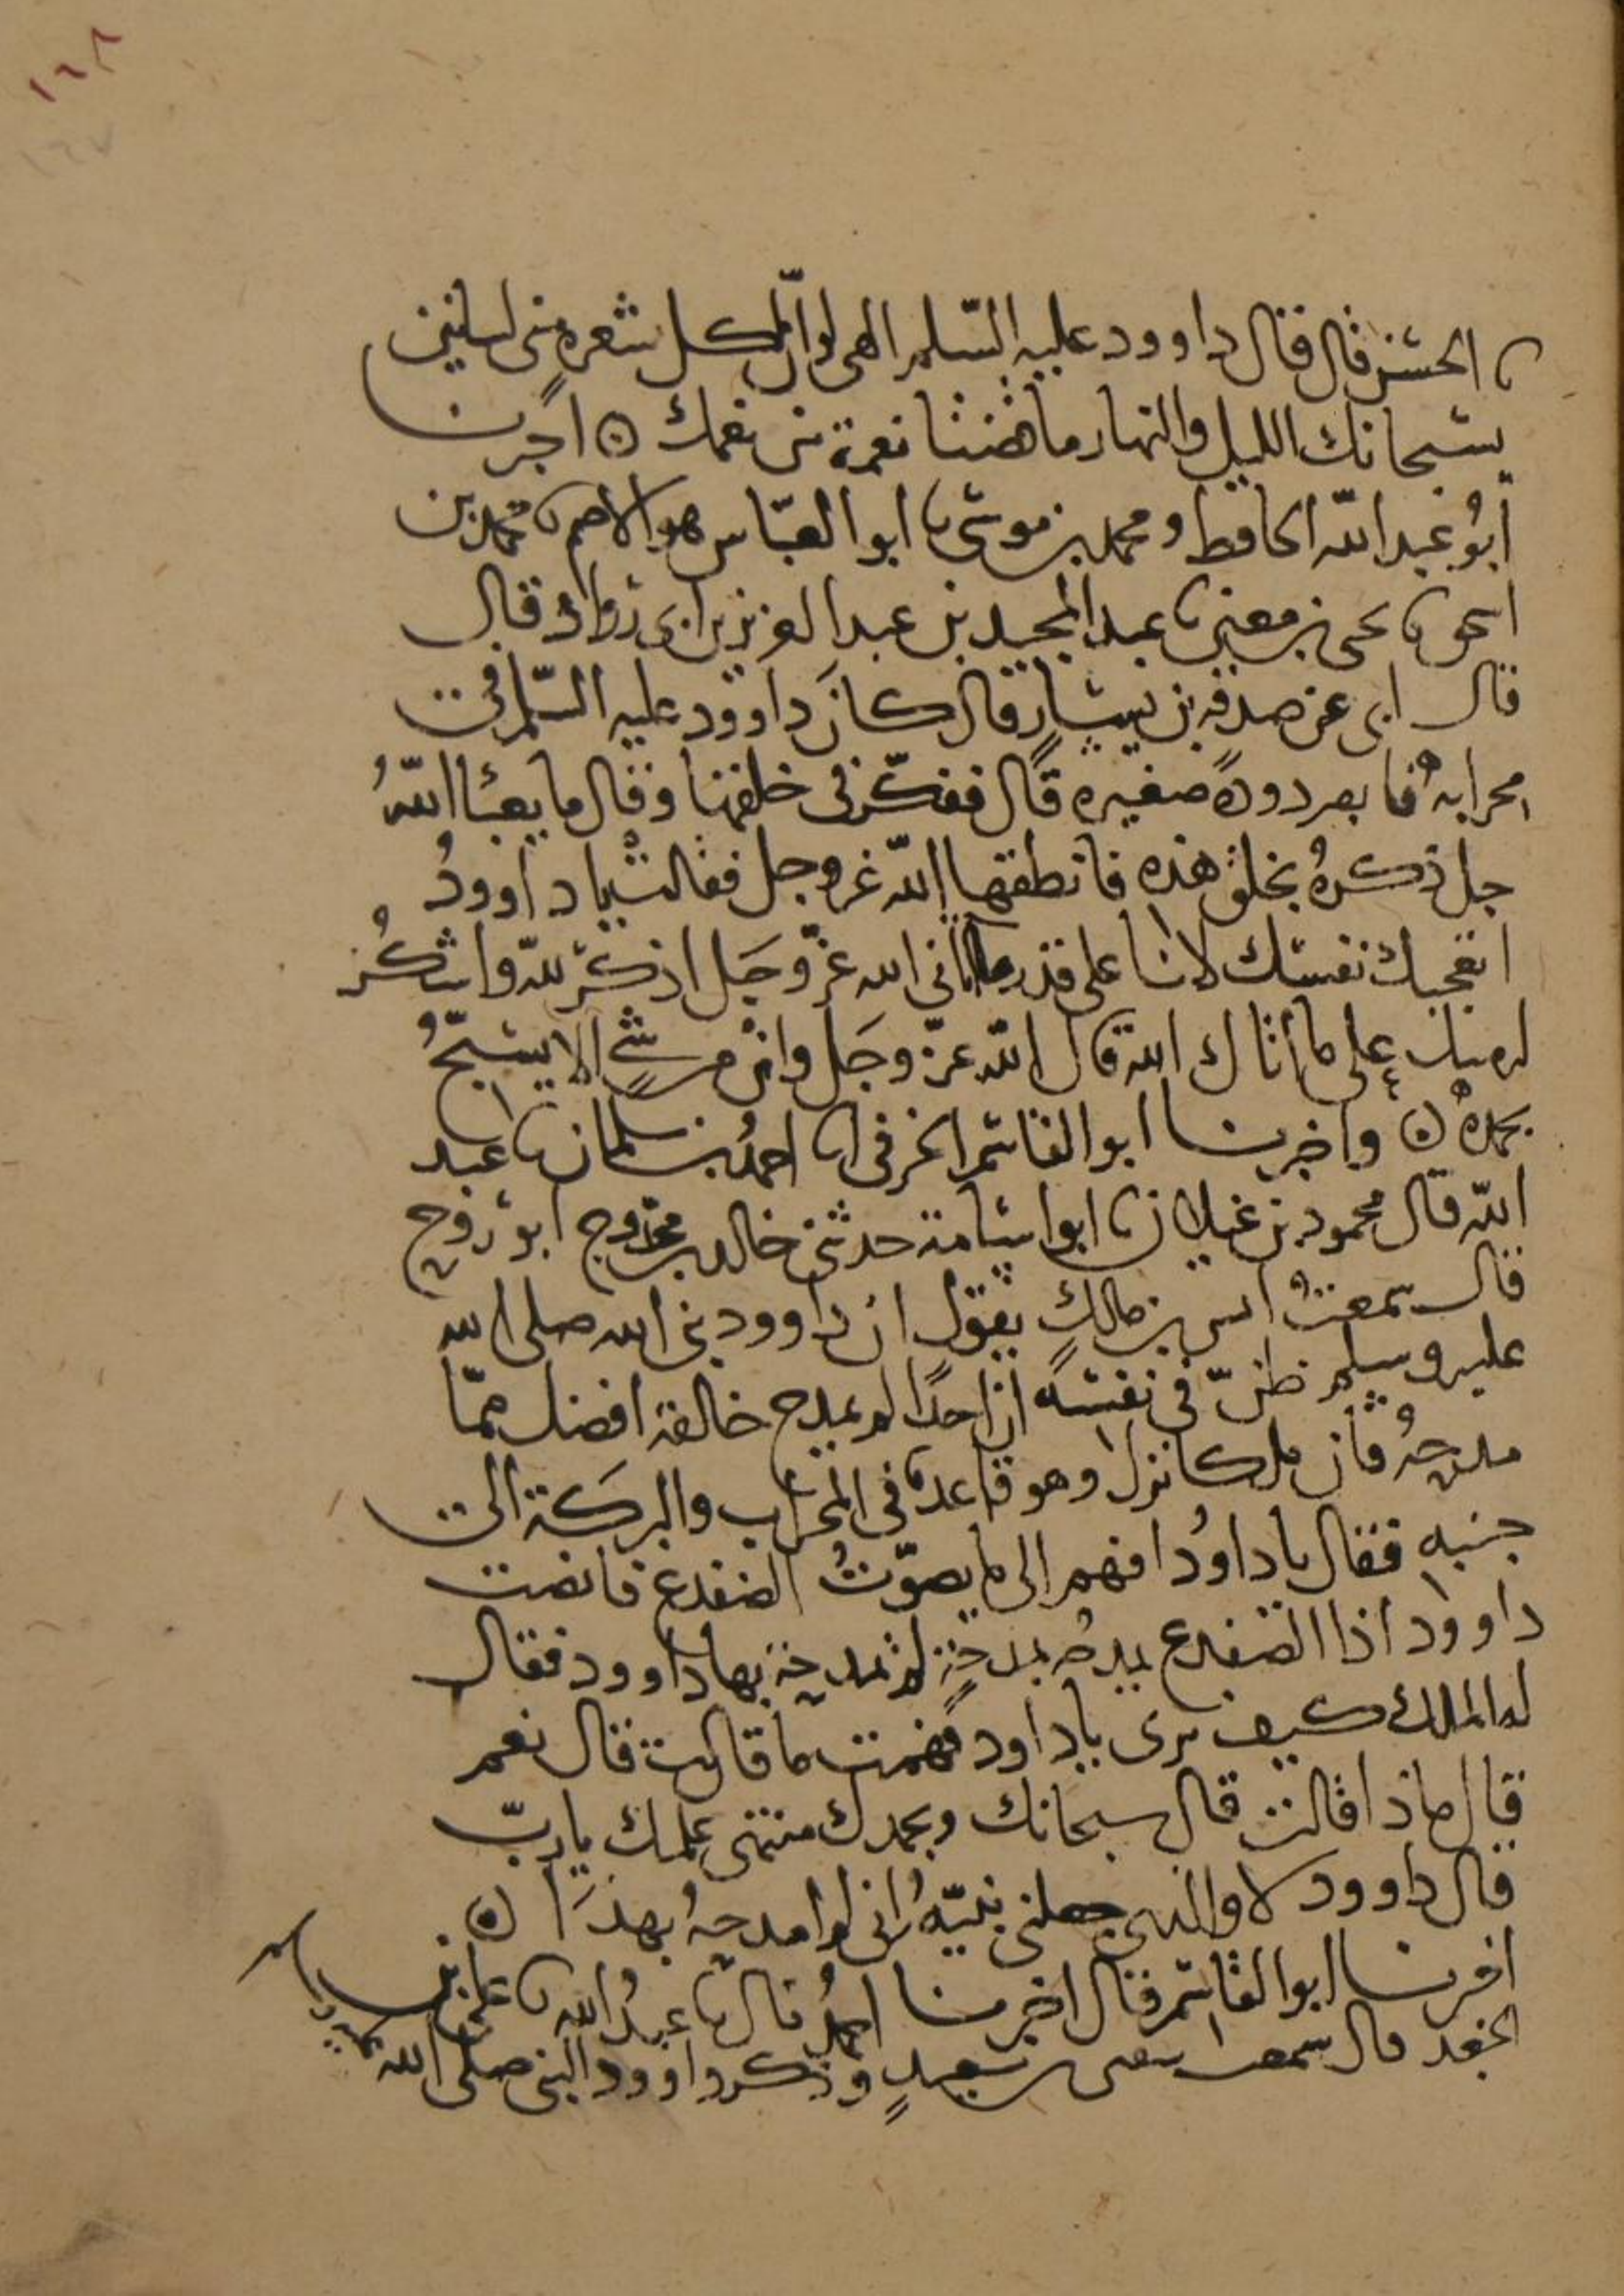 ١٦٨
١٦٧
الحسن قال قال داوود عليه السلم الهى لو ان لكل شعرة منى لسانين
يسبحانك الليل والنهار ما قضتنا نعمة من نعمك ۞ اخبرنا
أبو عبد الله الحافظ ومحمد بن موسى نا ابو العباس هو الاصم نا محمد بن
اسحق نا يحيى بن معين نا عبد المجيد بن عبد العزيز بن ابى رواد قال
قال ابى عن صدقة بن يسار قال كان داوود عليه السلم فى
محرابه فابصر دودة صغيرة قال ففكر فى خلقها وقال ما يعبئا الله
جل ذكره بخلق هذه فانطقها الله عز وجل فقالت يا داوود
اتعجبك نفسك لانا على قدر ما اتانى الله عز وجل اذكر لله واشكر
له منك على ما أتاك الله قال الله عز وجل وان من شىء الا يسبح
بحمده ۞ واخبرنا ابو القاسم الحرفى نا احمد بن سلمان نا عبد
الله قال محمود بن غيلان نا ابو اسامة حدثنى خالد بن محدوج ابو روح
قال سمعت انس بن مالك يقول ان داوود نبى الله صلى الله
عليه وسلم ظن فى نفسه ان احدا لم يمدح خالقه افضل مما
مدحه فان ملكا نزل وهو قاعد فى المحراب والبركة الى
جنبه فقال يا داوُد افهم الى ما يصوت الضفدع فانصت
داوود اذا الضفدع يمدحه بمدحة لم يمدحه بها داوود فقال
له الملك كيف ترى يا داود فهمت ما قالت قال نعم
قال ماذا قالت قال سبحانك وبحمدك منتهى علمك يا رب
قال داوود لا والذى جعلنى نبيه انى لم امدحه بهذا ۞
اخبرنا ابو القاسم قال اخبرنا احمد قال نا عبد الله نا على بن
الجعد قال سمعت سفين بن سعيد وذكر داوود النبى صلى الله عليه وسلم